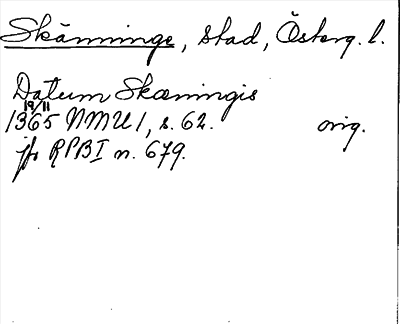 Skänninge, stad, Österg. l.
Datum Skæningis
19/11
1365 NMU 1, s. 62. orig.
jfr RPB I n. 679.